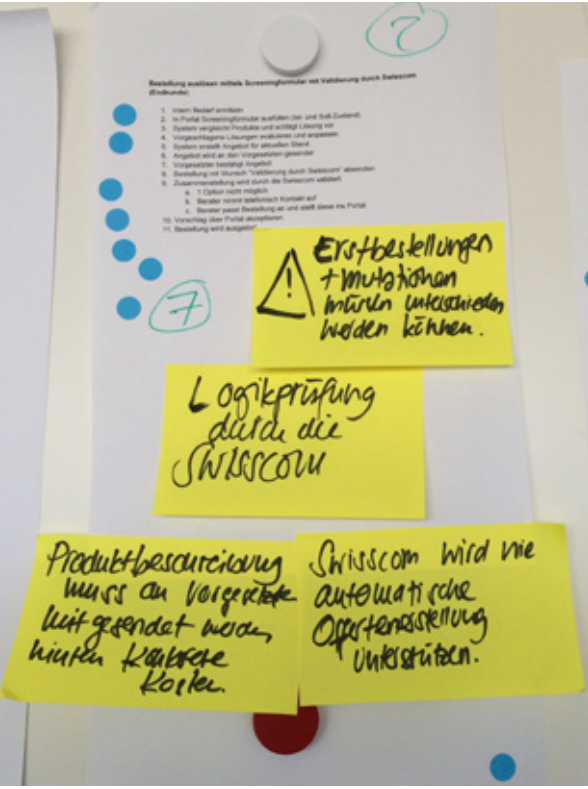 ?
Bestellung auslösen mittels Screeningformular mit Validierung durch Swisscom
(Endkunde)
1. Intern Bedarf ermitteln
2. In Portal Screeningformular ausfüllen (Ist- und Soll-Zustand)
3. System vergleicht Produkte und schlägt Lösung vor
4. Vorgeschlagene Lösungen evaluieren und anpassen
5. System erstellt Angebot für aktuellen Stand
6. Angebot wird an den Vorgesetzten gesendet
7. Vorgesetzter bestätigt Angebot
8. Bestellung mit Wunsch "Validierung durch Swisscom" absenden
9. Zusammenstellung wird durch die Swisscom validiert
a. 1 Option nicht möglich
b. Berater nimmt telefonisch Kontakt auf
c. Berater passt Bestellung an und stellt diese ins Portal
10. Vorschlag über Portal akzeptieren
11. Bestellung wird ausgelöst
7
!
Erstbestellungen
+ Mutationen
müssen unterschieden
werden können.
Logikprüfung
durch die
SWISSCOM
Produktbeschreibung
muss an Vorgesetzte
mitgesendet werden,
Kosten.
Swisscom wird nie
automatische
Offertenerstellung
unterstützen.